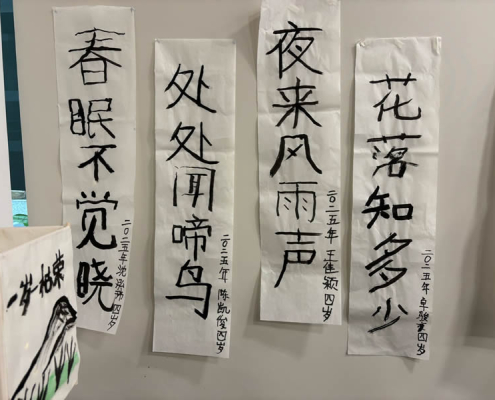 春眠不觉晓
二〇二五年 四岁
处处闻啼鸟
二〇二五年 陈凯莹 四岁
夜来风雨声
二〇二五年 王佳颖 四岁
花落知多少
二〇二五年 卓骏 四岁
一岁一枯荣